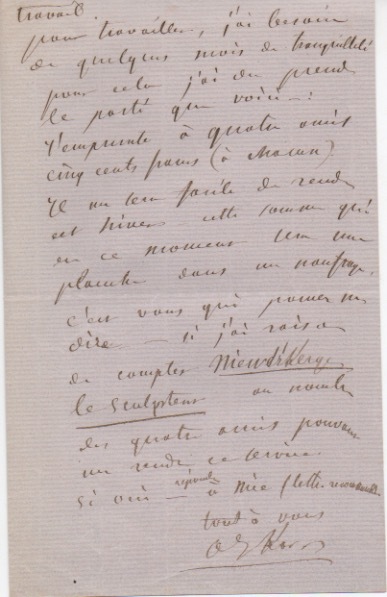 travail.
pour travailler, j'ai besoin
de quelques mois de tranquillité
pour cela j'ai du prendre
le parti que voici — :
J'emprunte à quatre amis
cinq cents francs (à chacun)
Il me sera facile de rendre
cet hiver cette somme qui
en ce moment sera une
planche dans un naufrage.
c'est vous qui pouvez me
dire — si j'ai raison
de compter Nieuwerkerke
le sculpteur au nombre
des quatre amis pouvant
me rendre ce service.
Si oui — réponse à Nice (lettre
tout à vous